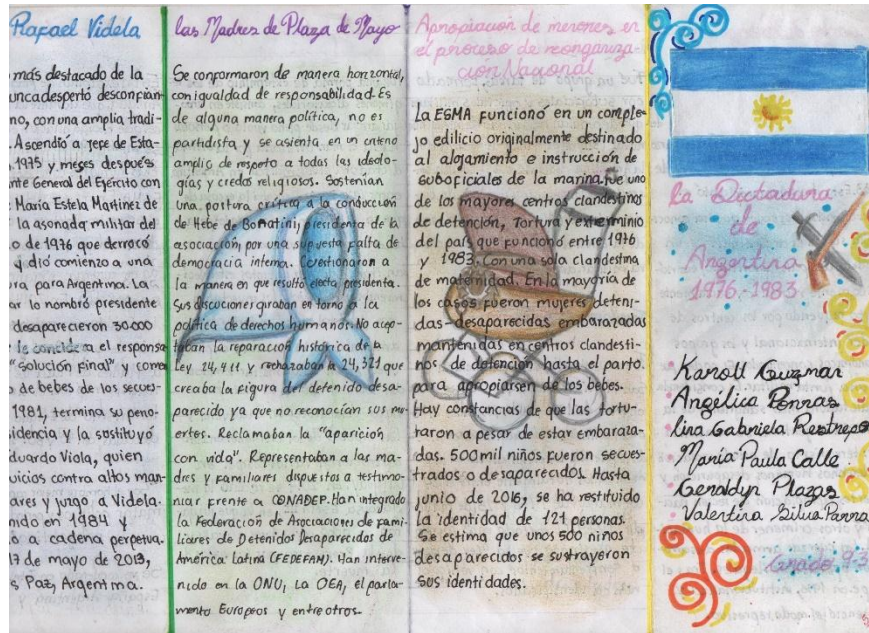 Rafael Videla
más destacado de la
unca despertó desconfian-
no, con una amplia tradi-
. Ascendió a jefe de Esta-
. 1975 y meses después
nte General del Ejército con
María Estela Martínez de
la asonada militar del
o de 1976 que derrocó
y dió comienzo a una
ra para Argentina. La
ar lo nombró presidente
desaparecieron 30.000
le considera el responsa
"solución final" y como
o de bebes de los secues-
1981, termina su peno-
idencia y la sostituyó
duardo Viola, quien
uicios contra altos man-
ares y juzgo a Videla.
nido en 1984 y
ó a cadena perpetua.
17 de mayo de 2013,
s Paz, Argentina.
las Madres de Plaza de Mayo
Se conformaron de manera horizontal,
con igualdad de responsabilidad. Es
de alguna manera política, no es
partidista y se asienta en un criterio
amplio de respeto a todas las ideolo-
gías y credos religiosos. Sostenían
una postura crítica a la conducción
de Hebe de Bonafini, presidenta de la
asociación, por una supuesta falta de
democracia interna. Cuestionaron a
la manera en que resultó electa presidenta.
Sus discuciones giraban en torno a la
política de derechos humanos. No acep-
taban la reparación histórica de la
Ley 24,411 y rechazaban la 24,321 que
creaba la figura del detenido desa-
parecido ya que no reconocían sus mu-
ertes. Reclamaban la "aparición
con vida". Representaban a las ma-
dres y familiares dispuestos a testimo-
niar frente a CONADEP. Han integrado
la Federación de Asociaciones de fami-
liares de Detenidos Desaparecidos de
América Latina (FEDEFAM). Han interve-
nido en la ONU, La OEA, el parla-
mento Europeos y entre otros.
Apropiación de menores en
el proceso de reorganiza-
ción Nacional
La ESMA funcionó en un comple-
jo edilicio originalmente destinado
al alojamiento e instrucción de
suboficiales de la marina. fue uno
de los mayores centros clandestinos
de detención, Tortura y exterminio
del país que funcionó entre 1976
y 1983. Con una sola clandestina
de maternidad. En la mayoría de
los casos fueron mujeres deteni-
das-desaparecidas embarazadas
mantenidas en centros clandesti-
nos de detención hasta el parto.
para apropiarsen de los bebes.
Hay constancias de que las tortu-
raron a pesar de estar embaraza-
das. 500 mil niños fueron secues-
trados o desaparecidos. Hasta
junio de 2016, se ha restituido
la identidad de 121 personas.
Se estima que unos 500 niños
desaparecidos se sustrayeron
sus identidades.
La Dictadura
de
Argentina
1976-1983
Karoll Guzman
Angélica Porras
Lina Gabriela Restrepo
María Paula Calle
Geraldyn Plazas
Valentina Silva Parra
Grado 9-3